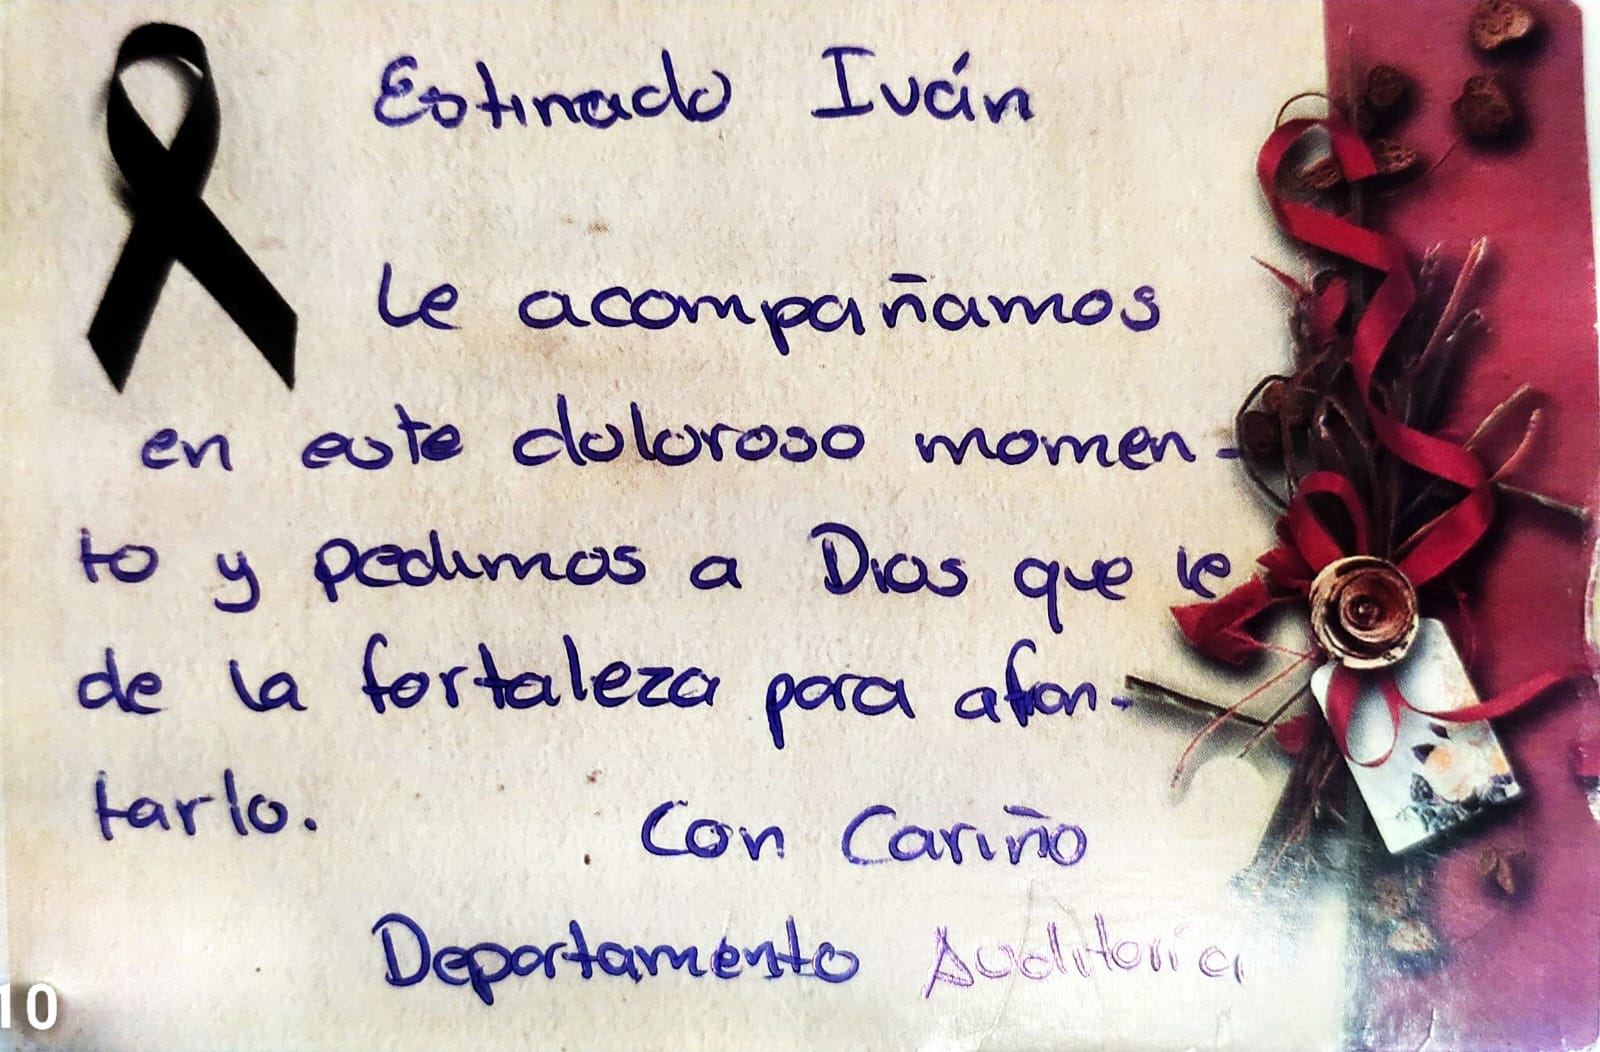 Estimado Iván
Le acompañamos
en este doloroso momen-
to y pedimos a Dios que le
de la fortaleza para afron-
tarlo.
Con Cariño
Departamento Auditoria
10